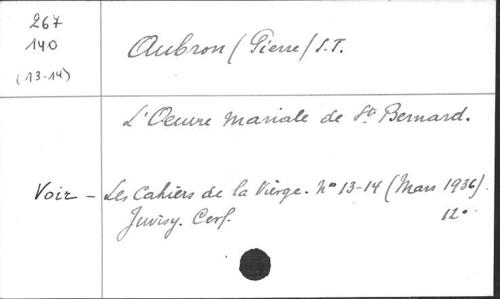 267
140
(13-14)
Aubron (Pierre) S.J.
L'Oeuvre mariale de St Bernard.
Voir - Les Cahiers de la Vierge. No 13-14 (Mars 1936).
Juvisy. Cerf. 12o